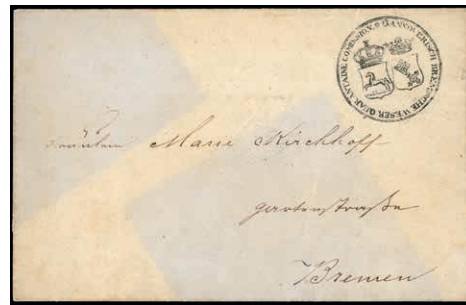 HANNOVERISCH BREMISCHE WESER QUARANTAINE COMISSION.
Fräulein Marie Kirchhoff
Gartenstraße
Bremen